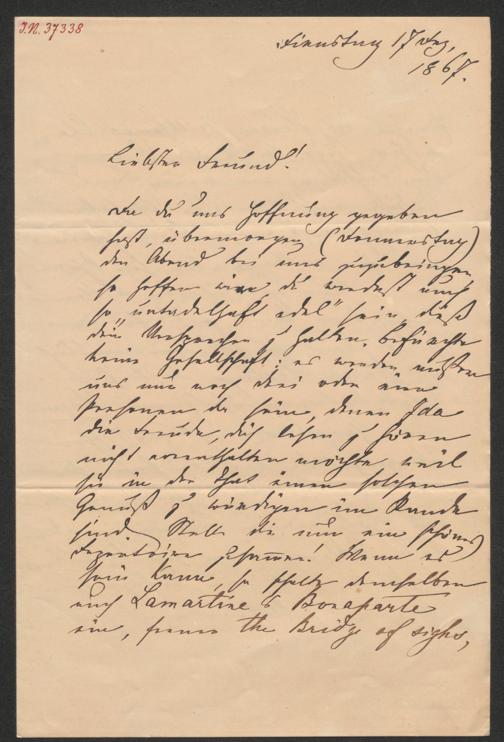 I.N. 37338
Dienstag 17 Dez,
1867.
Liebster Freund!
Da du uns Hoffnung gegeben
hast, übermorgen (Donnerstag)
den Abend bei uns zuzubringen
so hoffen wir du werdest auch
so „untadelhaft edel" sein, dieß
dein Versprechen zu halten. Befürchte
keine Gesellschaft; es werden außer
uns nur noch drei oder vier
Personen da sein, denen Ida
die Freude, dich lesen zu hören
nicht vorenthalten möchte, weil
sie in der That einen solchen
Genuß zu würdigen im Stande
sind. Stelle dir nur ein schönes
Repertoire zusammen! Wenn es
sein kann, so schalte demselben
auch Lamartine's Bonaparte
ein, ferner the Bridge of sighs,